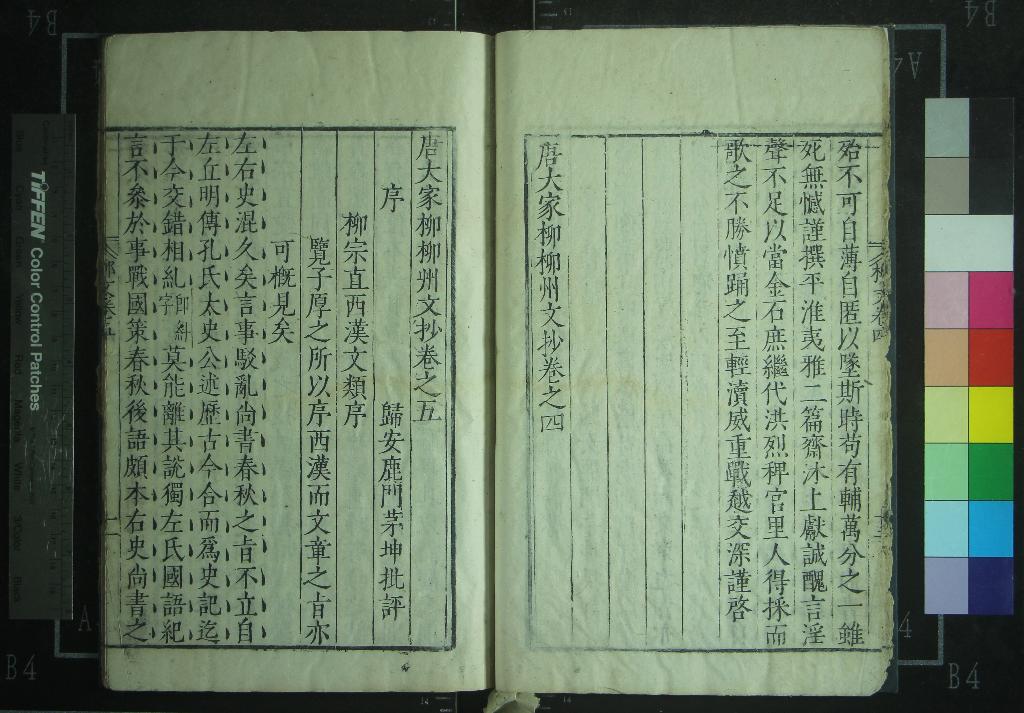 殆不可自薄自匿以墜斯時苟有輔萬分之一雖
死無憾謹撰平淮夷雅二篇齋沐上獻誠醜言淫
聲不足以當金石庶繼代洪烈稗官里人得採而
歌之不勝憤踊之至輕瀆威重戰越交深謹啓
唐大家柳柳州文抄卷之四
唐大家柳柳州文抄卷之五
歸安鹿門茅坤批評
序
柳宗直西漢文類序
覽子厚之所以序西漢而文章之旨亦
可概見矣
左右史混久矣言事駁亂尚書春秋之旨不立自
左丘明傳孔氏太史公述歷古今合而爲史記迄
于今交錯相糺卽糾字莫能離其說獨左氏國語紀
言不參於事戰國策春秋後語頗本右史尚書之
TIFFEN Color Control Patches
B4
B4
B4
B4
A4